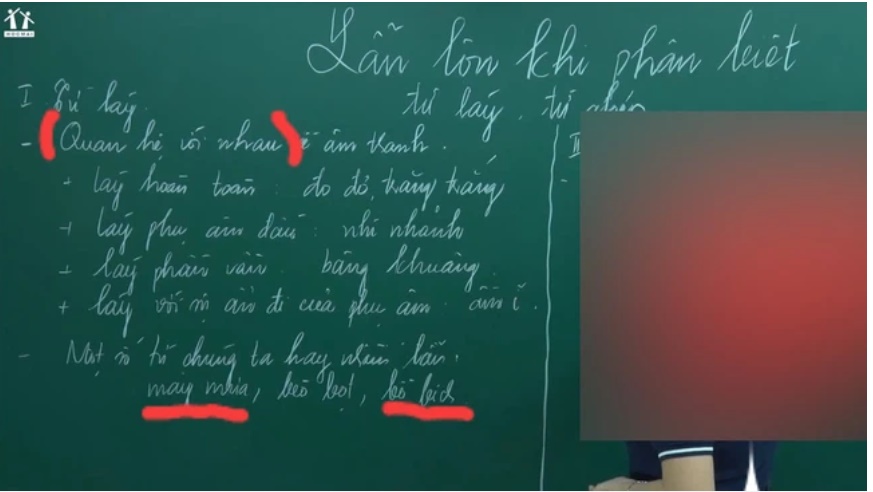 HOCMAI
Lẫn lộn khi phân biệt
từ láy, từ ghép
I Từ láy.
- Quan hệ với nhau về âm thanh.
+ láy hoàn toàn: đo đỏ, trăng trắng
+ láy phụ âm đầu: nhí nhảnh
+ láy phần vần: bâng khuâng
+ láy với sự ẩn đi của phụ âm: ầm ĩ.
- Một số từ chúng ta hay nhầm lẫn:
may mặc, bèo bọt,
II
-